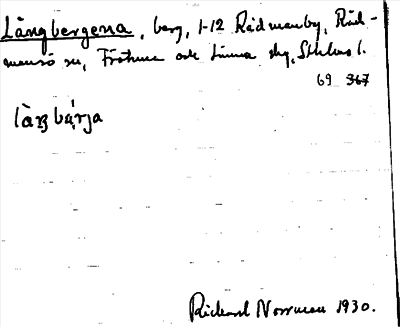 Långbergena, berg, 1-12 Rådmanby, Råd-
mansö sn, Frötuna och Länna skg, Sthlms l.
69 367
làŋbǽrja
Rickard Norrman 1930.